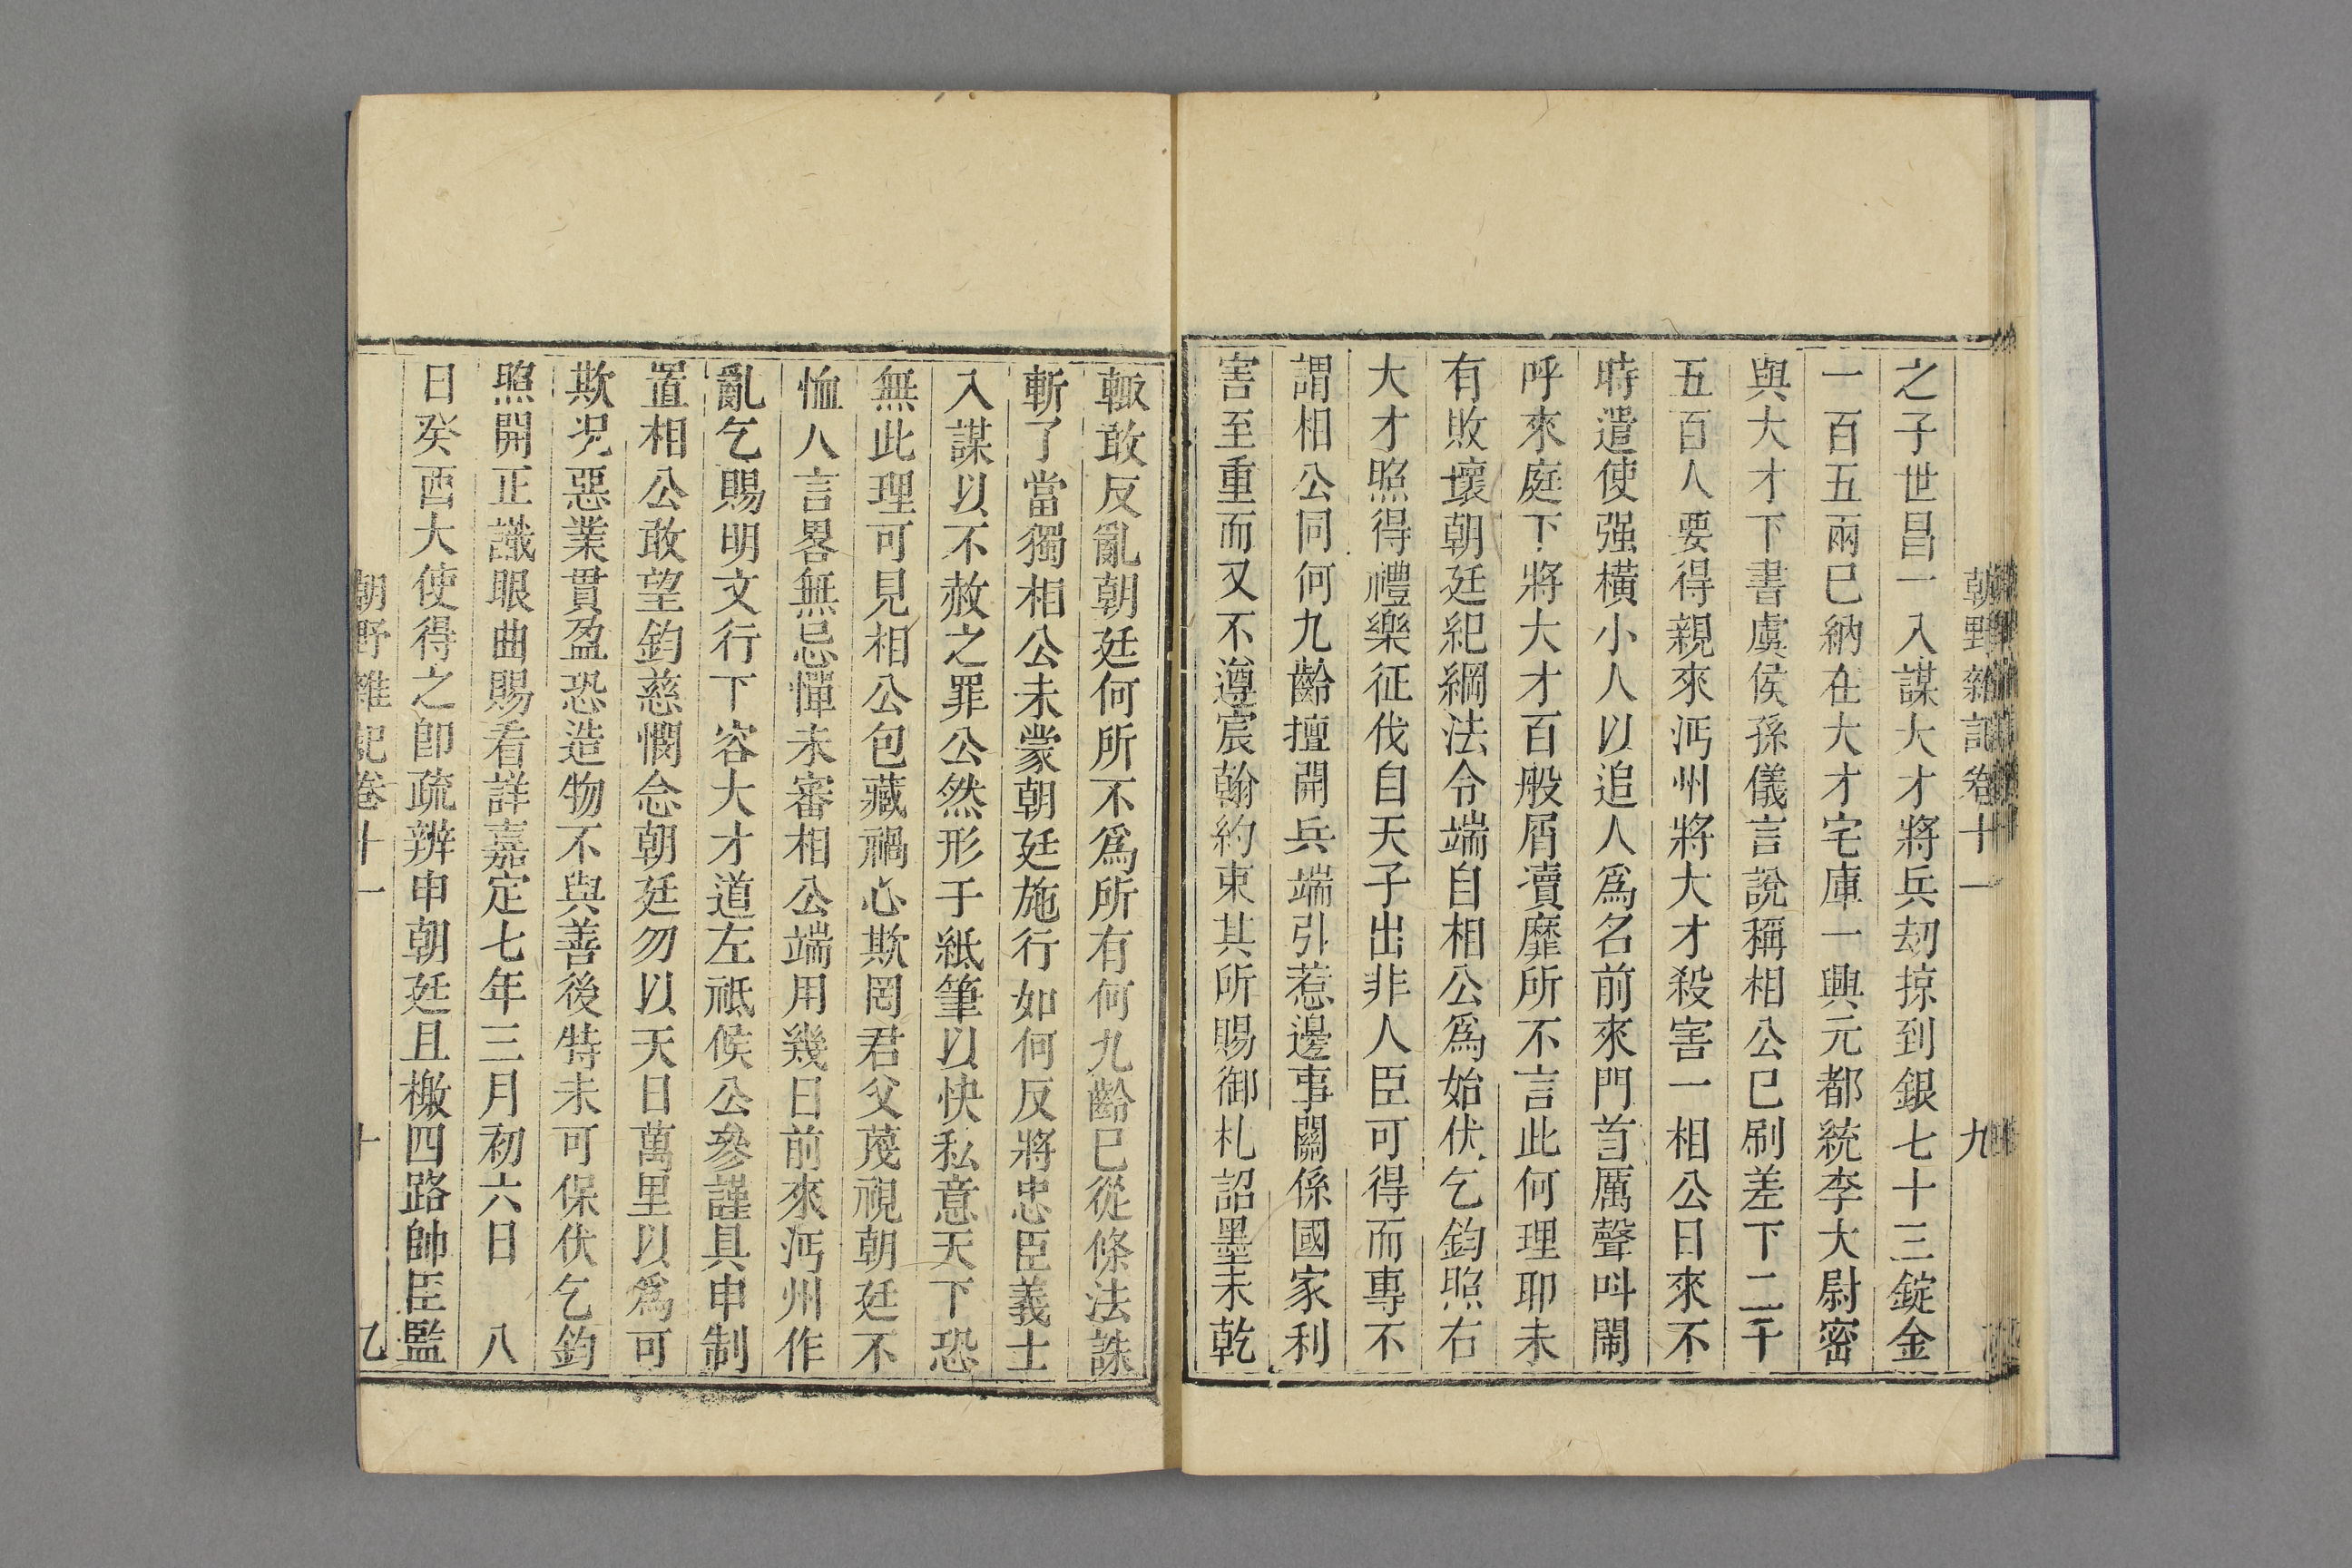 朝野雜記卷十一 九
之子世昌一入謀大才將兵刼掠到銀七十三錠金
一百五兩已納在大才宅庫一興元都統李大尉密
與大才下書虞侯孫儀言說稱相公已刷差下二千
五百人要得親來沔州將大才殺害一相公日來不
時遣使强橫小人以追人爲名前來門首厲聲呌鬧
呼來庭下將大才百般屑瀆靡所不言此何理耶未
有敗壞朝廷紀綱法令端自相公爲始伏乞鈞照右
大才照得禮樂征伐自天子出非人臣可得而專不
謂相公同何九齡擅開兵端引惹邊事關係國家利
害至重而又不遵宸翰約束其所賜御札詔墨未乾
輙敢反亂朝廷何所不爲所有何九齡已從條法誅
斬了當獨相公未蒙朝廷施行如何反將忠臣義士
入謀以不赦之罪公然形于紙筆以快私意天下恐
無此理可見相公包藏禍心欺罔君父蔑視朝廷不
恤人言畧無忌憚未審相公端用幾日前來沔州作
亂乞賜明文行下容大才道左祗候公參謹具申制
置相公敢望鈞慈憫念朝廷勿以天日萬里以爲可
欺况惡業貫盈恐造物不與善後特未可保伏乞鈞
照開正識眼曲賜看詳嘉定七年三月初六日 八
日癸酉大使得之卽疏辨申朝廷且檄四路帥臣監
朝野雜記卷十一 十 乙